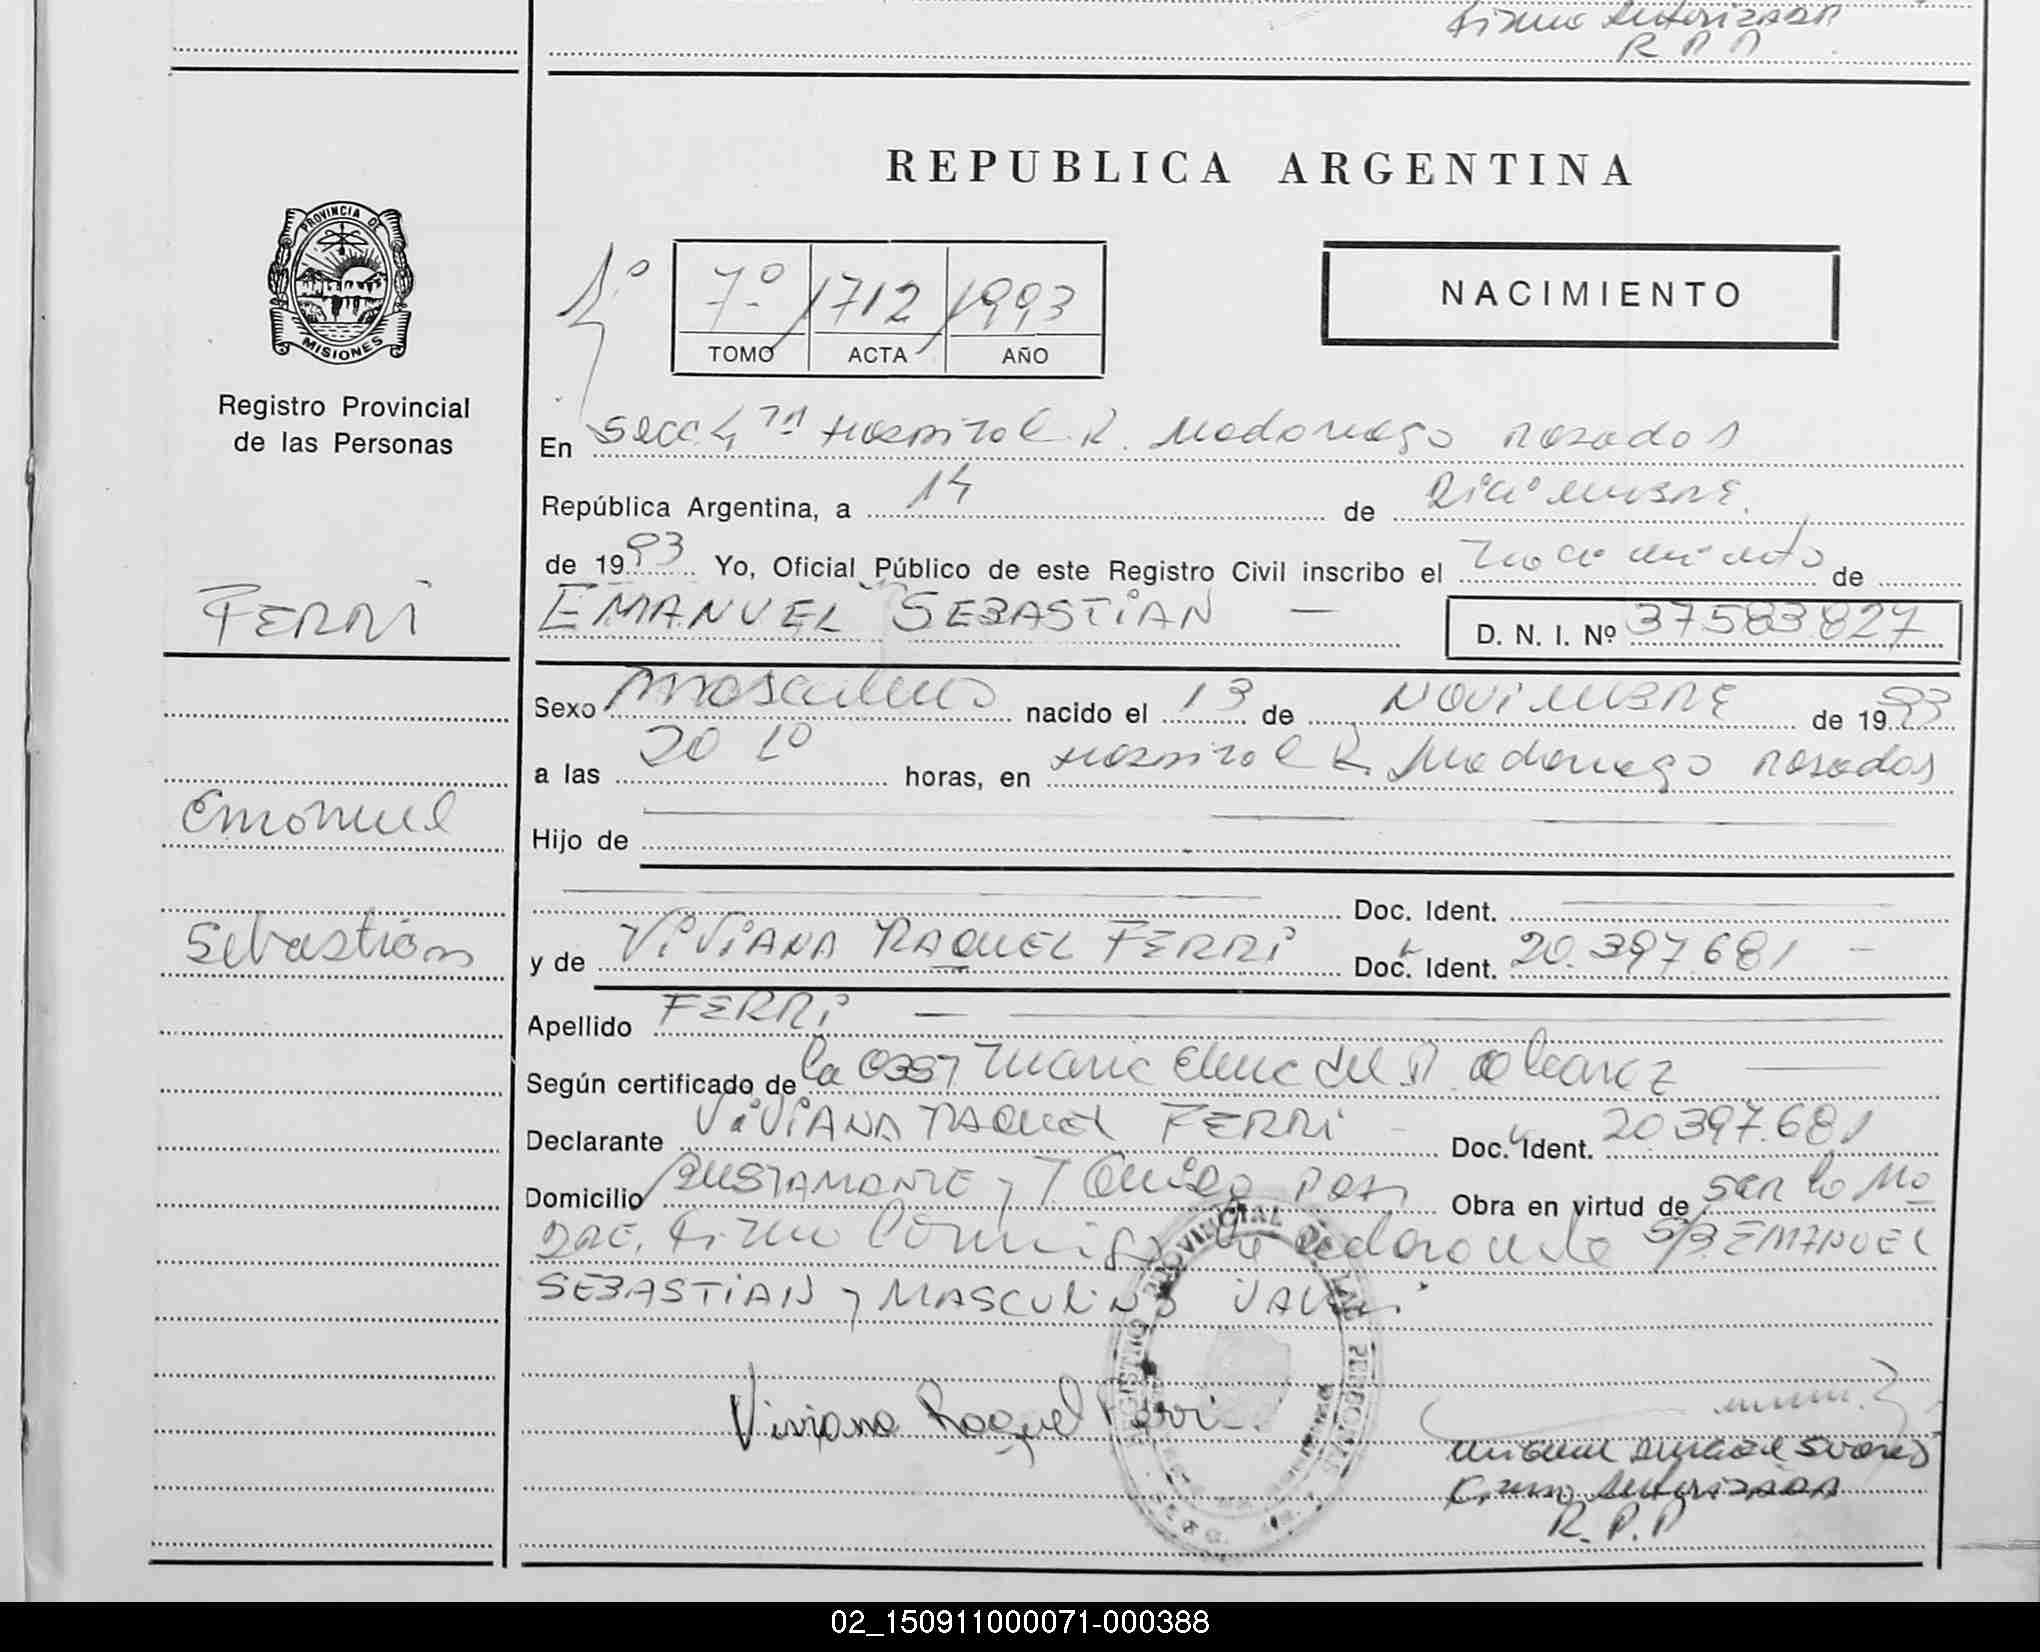 Firma Autorizada
R P P
REPUBLICA ARGENTINA
PROVINCIA DE
MISIONES
Registro Provincial
de las Personas
4º
7º 1712 1993
TOMO ACTA AÑO
NACIMIENTO
En Secc 4ta Hospital R. Madariaga Posadas
República Argentina, a 14 de Diciembre.
de 1993 Yo, Oficial Público de este Registro Civil inscribo el nacimiento de
FERRI
EMANUEL SEBASTIAN — D. N. I. Nº 37583827
Sexo masculino nacido el 13 de NOVIEMBRE de 1993
a las 20 10 horas, en Hospital R. Madariaga Posadas
Emanuel
Hijo de
Doc. Ident.
Sebastián
y de VIVIANA RAQUEL FERRI Doc. Ident. 20.397.681 —
Apellido FERRI —
Según certificado de la Obst Maria Elena del Alcaraz
Declarante VIVIANA RAQUEL FERRI - Doc. Ident. 20397.681
Domicilio BUSTAMANTE y Obra en virtud de ser la Ma
DRE. Firma Conmigo la declarante S/B EMANUEL
SEBASTIAN y MASCULINO VALE
REGISTRO PROVINCIAL DE LAS PERSONAS
Viviana Raquel Ferri
Suarez
Firma Autorizada
R. P. P
02_150911000071-000388